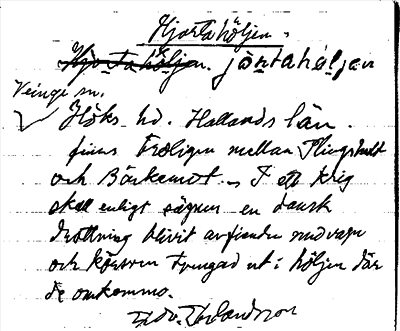 Hjortahöljen.
Hjortahöljen. jörtahöljen
Veinge sn.
Höks hd. Hallands län.
finns troligen mellan
och Börkemot. I ett krig
skall enligt sägnen en dansk
drottning blivit av fienden
och tvungad ut i höljen där
de omkommo.
Edv. Erlandsson